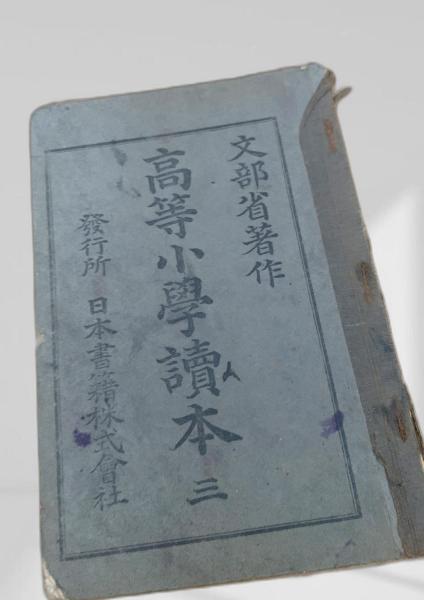 文部省著作
高等小學讀本 三
發行所 日本書籍株式會社